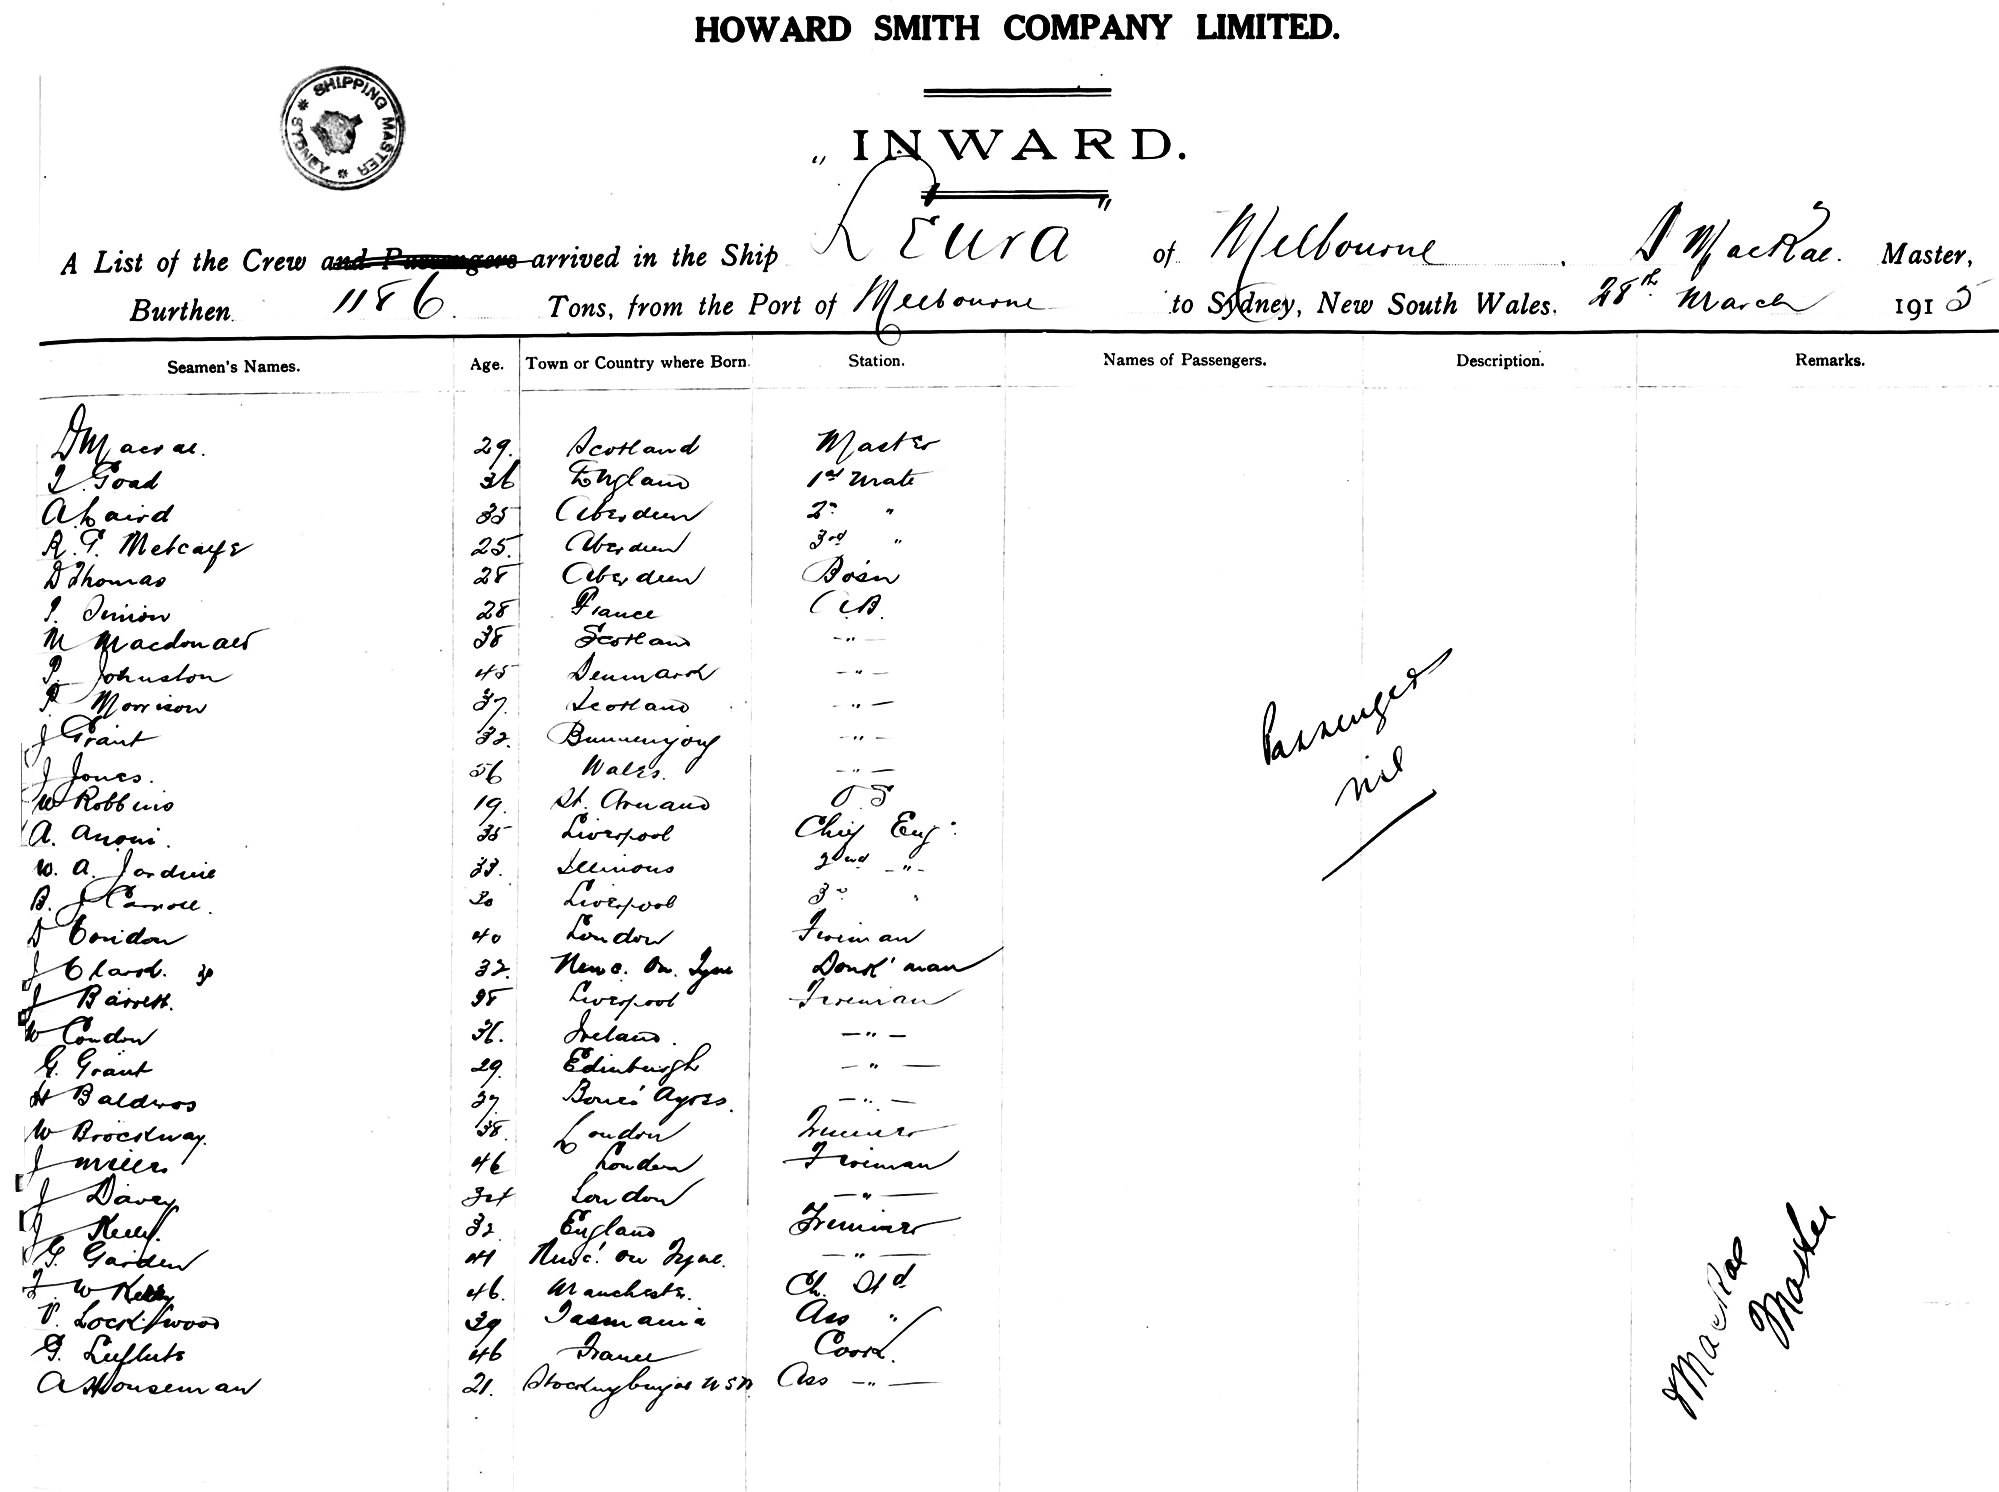 HOWARD SMITH COMPANY LIMITED.
SHIPPING MASTER * SYDNEY *
INWARD.
A List of the Crew and Passengers arrived in the Ship "Leura" of Melbourne D MacRae. Master,
Burthen 1186 Tons, from the Port of Melbourne to Sydney, New South Wales. 28th March 1915
Seamen's Names. Age. Town or Country where Born. Station. Names of Passengers. Description. Remarks.
D Macrae. 29. Scotland Master
Goad 36 England 1st Mate
A Laird 35 Aberdeen 2nd "
R. G. Metcalfe 25. Aberdeen 3rd "
D Thomas 28 Aberdeen Bosn
28 France A.B.
M Macdonald 38 Scotland - " -
P. Johnston 45 Denmark - " -
Morrison 37. Scotland - " -
J Grant 32. Buninyong - " -
J Jones. 56 Wales. - " -
W Robbins 19. St. Arnaud O S
A. 35 Liverpool Chief Eng.
W. A. Jardine 33. Illinois 2nd - " -
B. J Carroll. 30 Liverpool 3rd "
D Condon 40 London Fireman
J Clark. 32. Newc. On. Tyne Donk'man
J Barrett. 38 Liverpool Fireman
W Condon 36. Ireland. - " -
G. Grant 29. Edinburgh - " -
H 37. Ayres. - " -
W Brockway. 38. London Trimmer
J Miller 46 London Fireman
J Davey 34 London - " -
J Kelly. 32 England Trimmer
G. Garden 41 Newc' on Tyne. - " -
W Kelly 46. Manchester. Ch. Std.
V. Lockwood 39 Tasmania Ass "
G. 46 France Cook.
A Houseman 21. N S W. Ass - " -
Passengers
nil
MacRae
Master